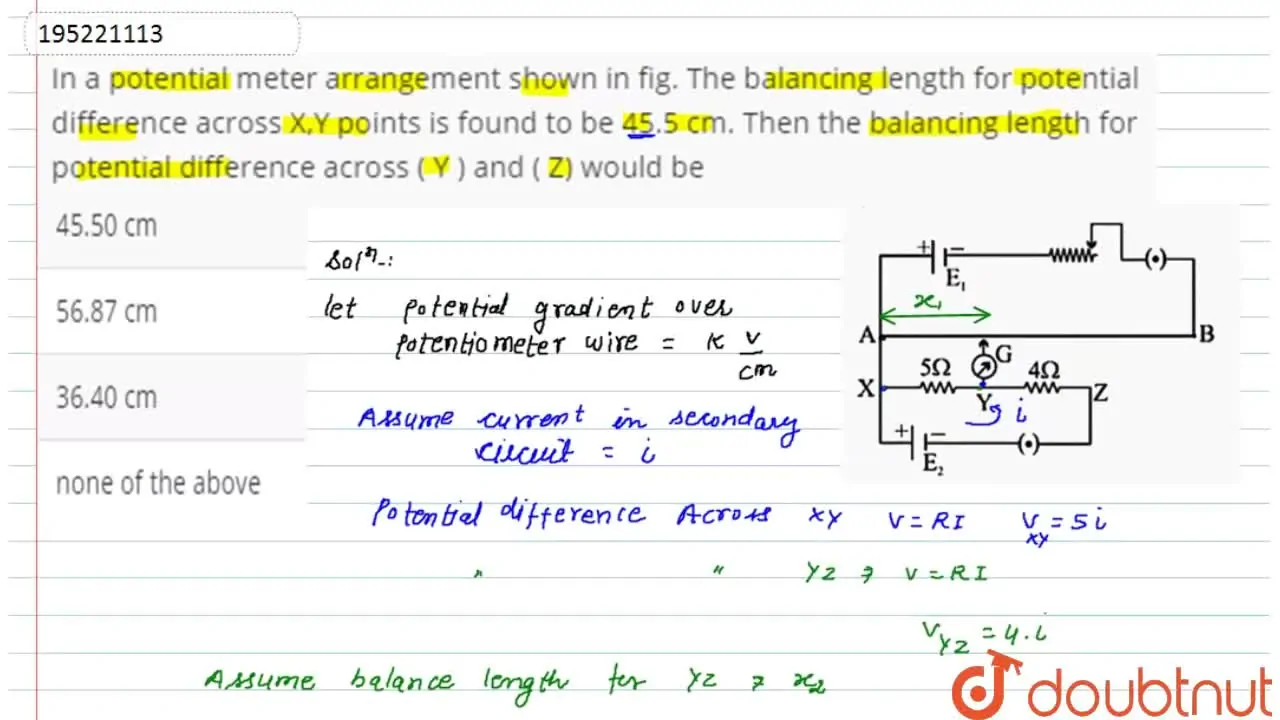 195221113
In a potential meter arrangement shown in fig. The balancing length for potential
difference across X,Y points is found to be 45.5 cm. Then the balancing length for
potential difference across ( Y ) and ( Z) would be
45.50 cm
56.87 cm
36.40 cm
none of the above
Solⁿ-:
let potential gradient over
potentiometer wire = K V/cm
Assume current in secondary
circuit = i
Potential difference Across XY V = RI V_XY = 5i
" " YZ ⇒ V = RI
V_YZ = 4.i
Assume balance length for YZ ⇒ x₂
+ −
E₁
(•)
x₁
A B
G
5Ω 4Ω
X Y Z
i
+ −
E₂
(•)
doubtnut